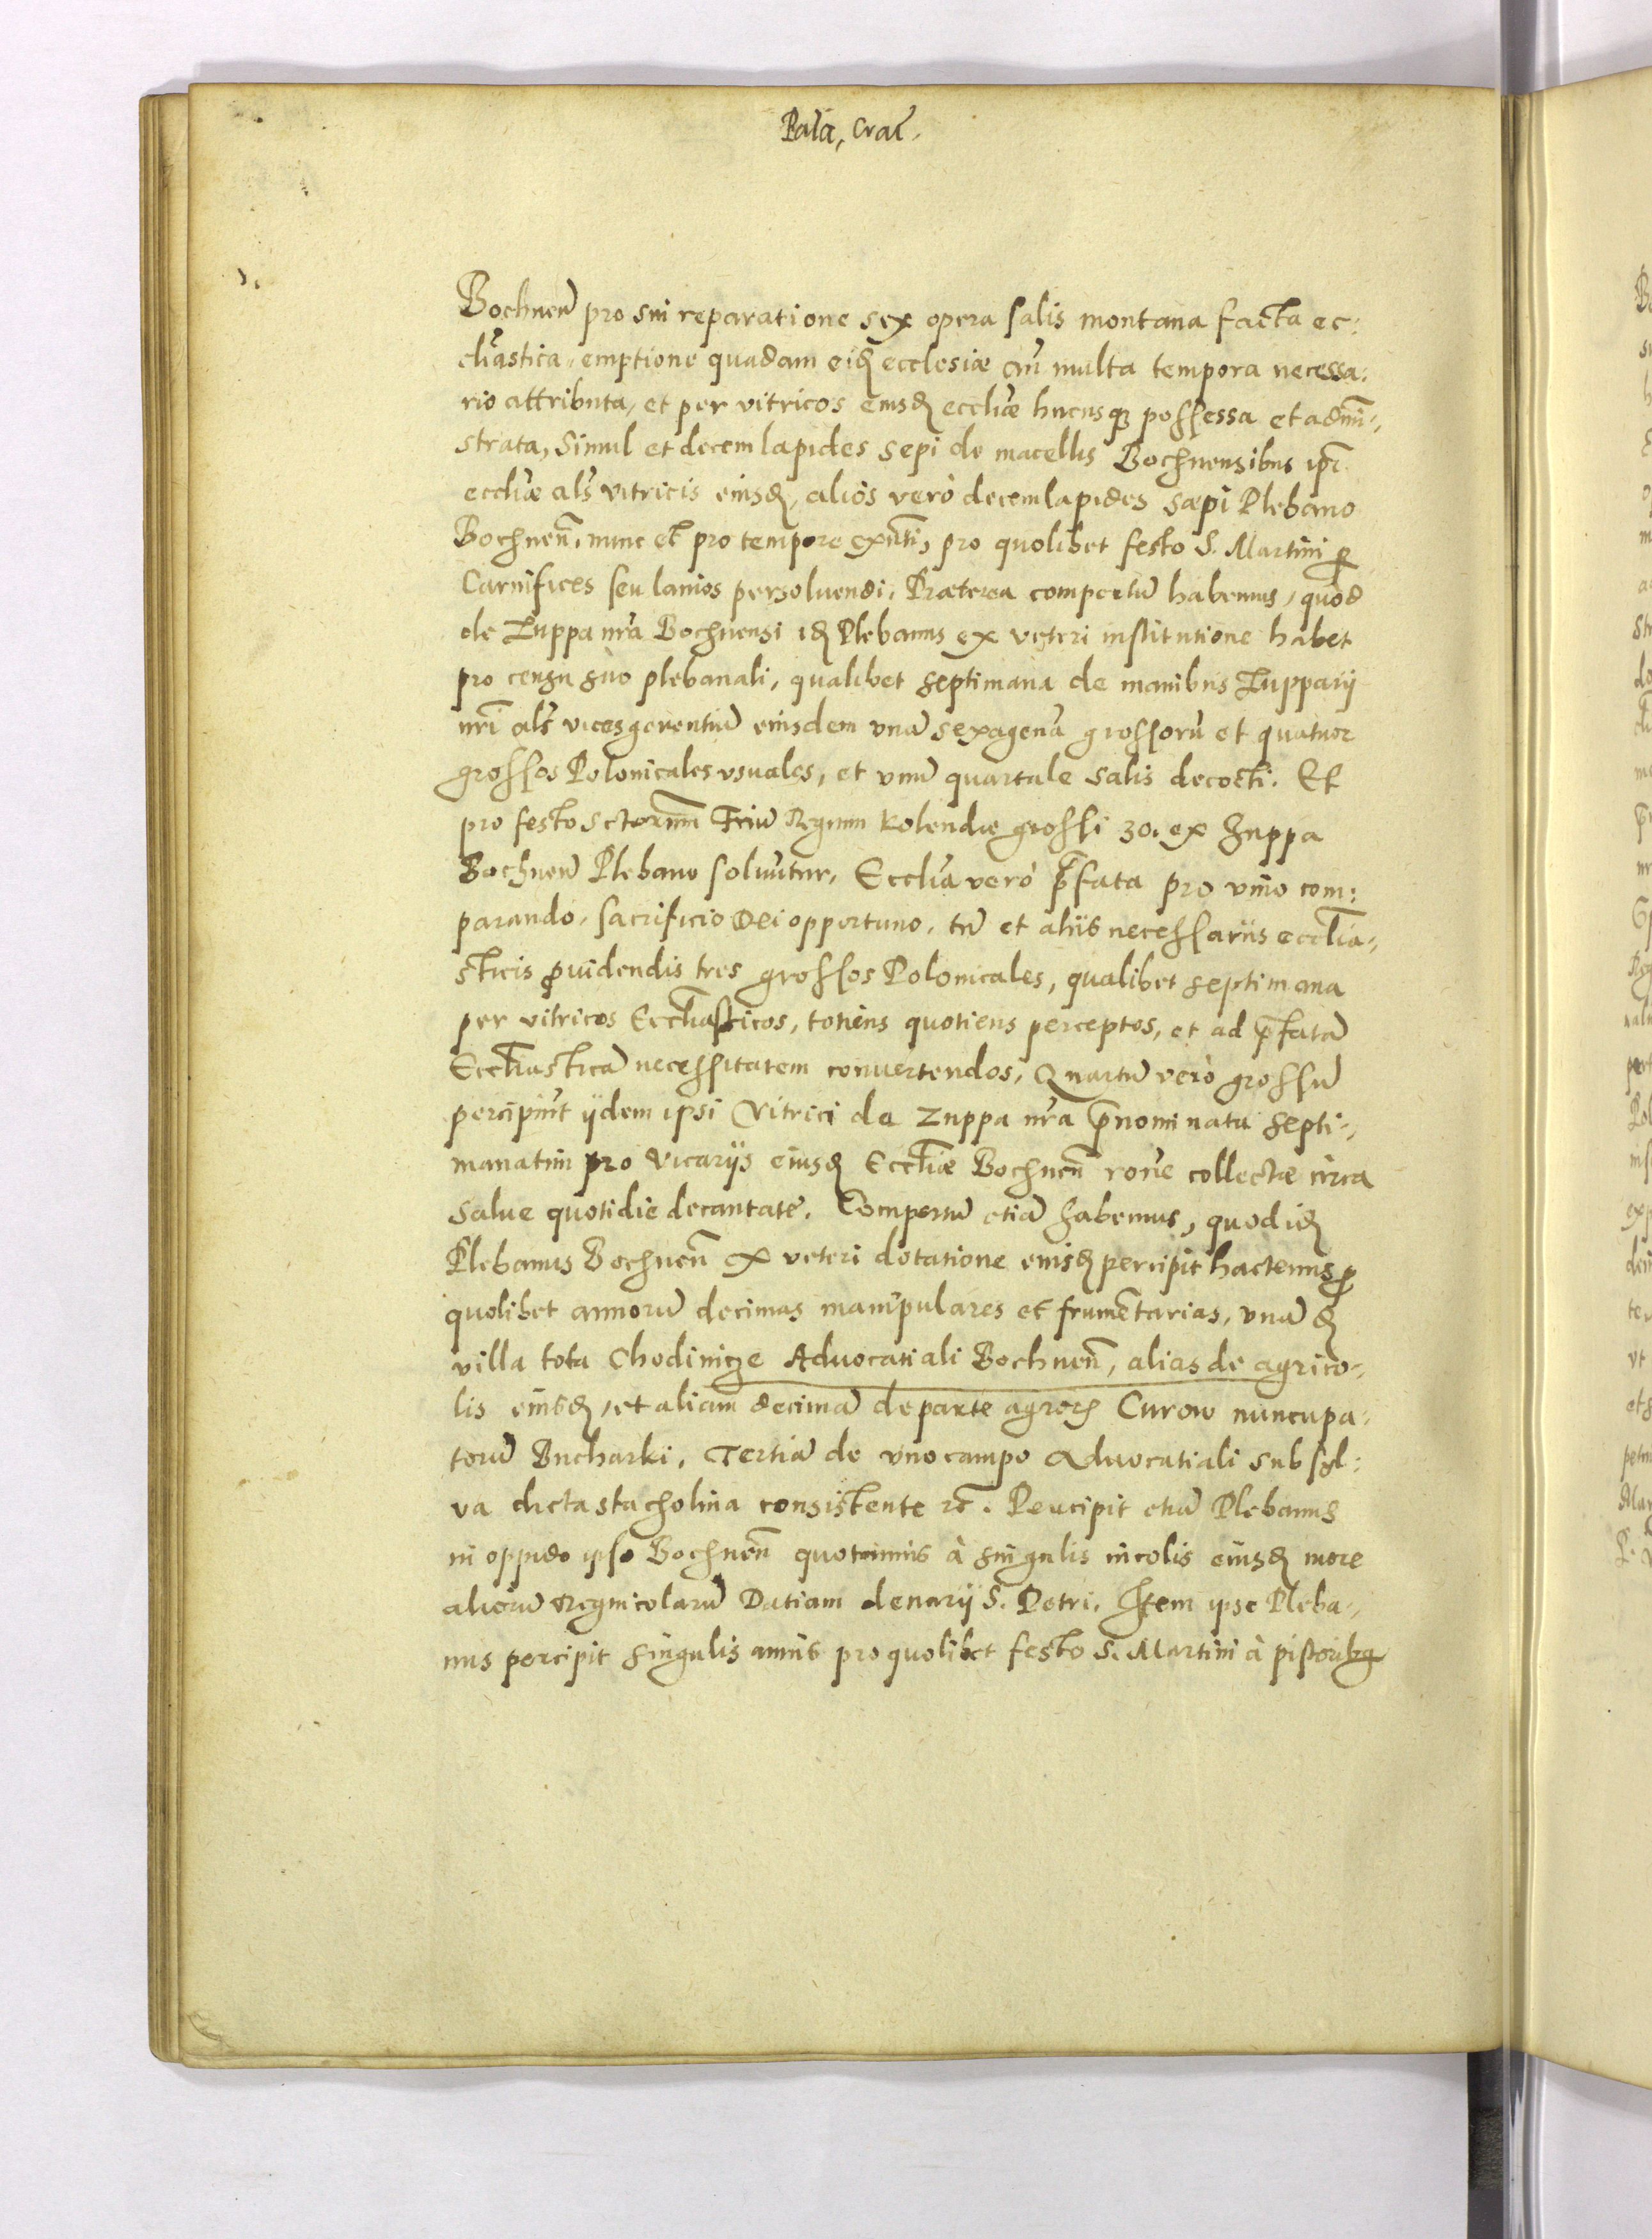 Pala, Crac.
Bochnen̄ pro sui reparatione sex opera salis montana facta ec:
cl̄iastica, emptione quadam eid ecclesiæ an̄ multa tempora necessa:
rio attributa, et per vitricos eiusd eccl̄iæ hucusq possessa et admi-
strata, Simul et decem lapides sepi de macellis Bochnensibus ip̄i
eccl̄iæ als vitricis eiusd, alios verò decem lapides sæpi Plebano
Bochnen̄, nunc et pro tempore exn̄ti, pro quolibet festo S. Martini p
Carnifices seu lanios persoluendi, Præterea compertū habemus, quod
de Zuppa nr̄a Bochnensi id Plebanus ex veteri institutione habet
pro censu suo plebanali, qualibet septimana de manibus Zupparij
nr̄i als vicesgerentiū eiusdem vnā sexagenā grossorū et quatuor
grossos Polonicales vsuales, et vnū quartale salis decocti. Et
pro festo Sctorum Triū Regum Kolendæ grossi 30. ex Zuppa
Bochnen̄ Plebano soluūtur, Eccl̄ia verò p̄fata pro vino com:
parando, sacrificio Dei opportuno, tū et alijs necessarijs eccl̄ia-
sticis puidendis tres grossos Polonicales, qualibet septimana
per vitricos Eccl̄iasticos, totiens quotiens perceptos, et ad p̄fatā
Eccl̄iasticā necessitatem conuertendos, Quartū verò grossū
percipiūt ijdem ipsi Vitrici de Zuppa nr̄a p̄nominata septi-
manatim pro Vicarijs eiusd Eccl̄iæ Bochnen̄ rōne collectæ circa
Salue quotidie decantatæ. Compertū etiā habemus, quod id
Plebanus Bochnen̄ ex veteri dotatione eiusd percipit hactenus p
quolibet annorū decimas manipulares et frumētarias, vnā d
villa tota Chodinicze Aduocatiali Bochnen̄, alias de agrico-
lis eiusd, et aliam decimā de parte agrorꝝ Curow nuncupa-
torū Bucharki, Tertiā de vno campo Aduocatiali sub syl:
va dicta stacholina consistente &c. Percipit etiā Plebanus
in oppido ipso Bochnen̄ quotannis à singulis incolis eiusd more
aliorū Regnicolarū Datiam denarij S. Petri. Item ipse Pleba-
nus percipit singulis annis pro quolibet festo S. Martini à pistoribꝗ